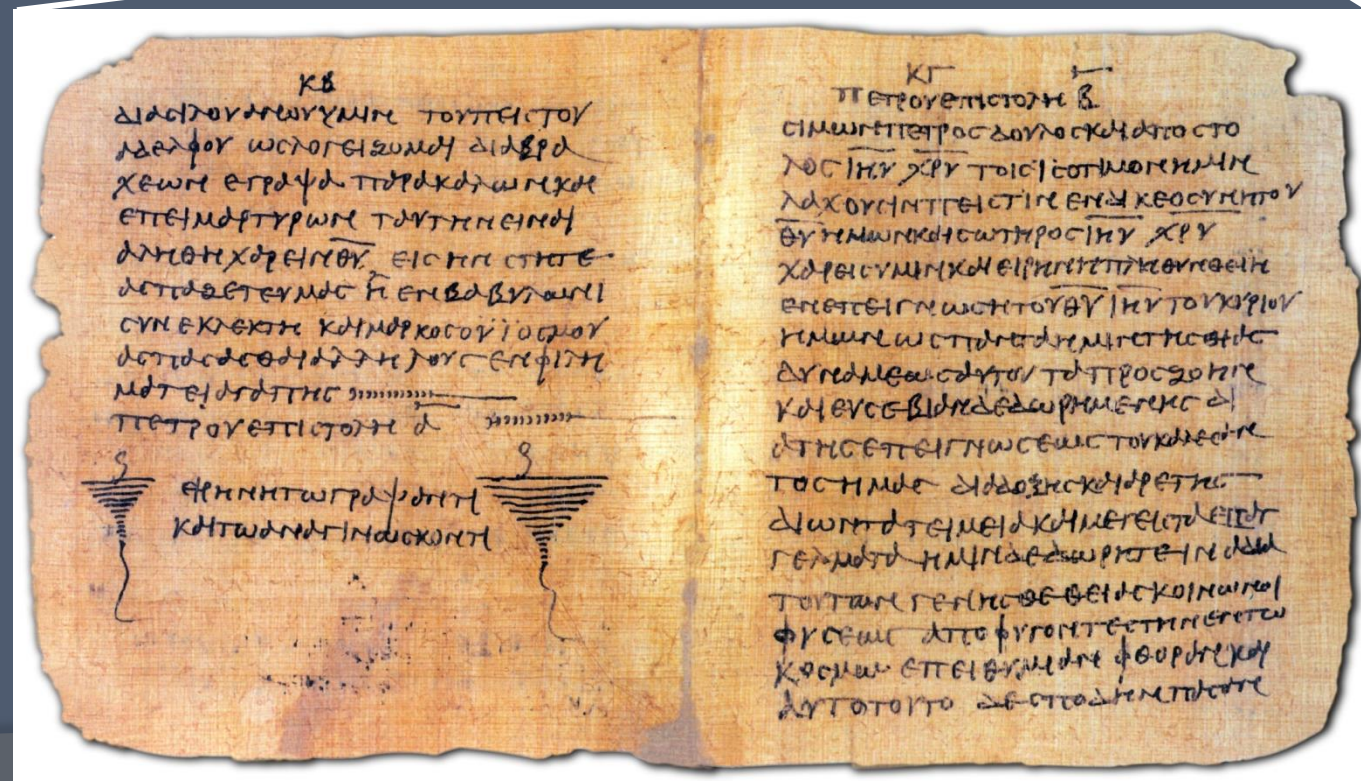 ΚΒ
ΔΙΑ CΙΛΟΥΑΝΩΥ ΥΜΙΝ ΤΟΥ ΠΕΙCΤΟΥ
ΑΔΕΛΦΟΥ ΩC ΛΟΓΕΙΖΟΜΑΙ ΔΙΑ ΒΡΑ
ΧΕΩΝ ΕΓΡΑΨΑ ΠΑΡΑΚΑΛΩΝ ΚΑΙ
ΕΠΕΙΜΑΡΤΥΡΩΝ ΤΑΥΤΗΝ ΕΙΝΑΙ
ΑΛΗΘΗ ΧΑΡΕΙΝ Θ̅Υ̅ ΕΙC ΗΝ CΤΗΤΕ
ΑCΠΑΖΕΤΕ ΥΜΑC Η ΕΝ ΒΑΒΥΛΩΝΙ
CΥΝΕΚΛΕΚΤΗ ΚΑΙ ΜΑΡΚΟC Ο ΥΙΟC ΜΟΥ
ΑCΠΑCΑCΘΑΙ ΑΛΛΗΛΟΥC ΕΝ ΦΙΛΗ
ΜΑΤΕΙ ΑΓΑΠΗC
ΠΕΤΡΟΥ ΕΠΙCΤΟΛΗ Α̅
ΕΙΡΗΝΗ ΤΩ ΓΡΑΨΑΝΤΙ
ΚΑΙ ΤΩ ΑΝΑΓΙΝΩCΚΟΝΤΙ
ΚΓ
ΠΕΤΡΟΥ ΕΠΙCΤΟΛΗ Β̅
CΙΜΩΝ ΠΕΤΡΟC ΔΟΥΛΟC ΚΑΙ ΑΠΟCΤΟ
ΛΟC Ι̅Η̅Υ̅ Χ̅Ρ̅Υ̅ ΤΟΙC ΙCΟΤΙΜΟΝ ΗΜΙΝ
ΛΑΧΟΥCΙΝ ΠΕΙCΤΙΝ ΕΝ ΔΙΚΕΟCΥΝΗ ΤΟΥ
Θ̅Υ̅ ΗΜΩΝ ΚΑΙ CΩΤΗΡΟC Ι̅Η̅Υ̅ Χ̅Ρ̅Υ̅
ΧΑΡΕΙC ΥΜΙΝ ΚΑΙ ΕΙΡΗΝΗ ΠΛΗΘΥΝΘΕΙΗ
ΕΝ ΕΠΕΙΓΝΩCΗ ΤΟΥ Θ̅Υ̅ Ι̅Η̅Υ̅ ΤΟΥ ΚΥΡΙΟΥ
ΗΜΩΝ ΩC ΠΑΝΤΑ ΗΜΙΝ ΤΗC ΘΙΑC
ΔΥΝΑΜΕΩC ΑΥΤΟΥ ΤΑ ΠΡΟC ΖΟΗΝ
ΚΑΙ ΕΥCΕΒΙΑΝ ΔΕΔΩΡΗΜΕΝΗC ΔΙ
Α ΤΗC ΕΠΕΙΓΝΩCΕΩC ΤΟΥ ΚΑΛΕCΑΝ
ΤΟC ΗΜΑC ΔΙΑ ΔΟΞΗC ΚΑΙ ΑΡΕΤΗC
ΔΙ ΩΝ ΤΑ ΤΕΙΜΕΙΑ ΚΑΙ ΜΕΓΕΙCΤΑ ΕΠΑΓ
ΓΕΛΜΑΤΑ ΗΜΙΝ ΔΕΔΩΡΗΤΕ ΙΝΑ ΔΙΑ
ΤΟΥΤΩΝ ΓΕΝΗCΘΕ ΘΕΙΑC ΚΟΙΝΩΝΟΙ
ΦΥCΕΩC ΑΠΟΦΥΓΟΝΤΕC ΤΗΝ ΕΝ ΤΩ
ΚΟCΜΩ ΕΠΕΙΘΥΜΙΑΝ ΦΘΟΡΑΝ ΚΑΙ
ΑΥΤΟ ΤΟΥΤΟ ΔΕ CΠΟΔΗΝ ΠΑCΑΝ